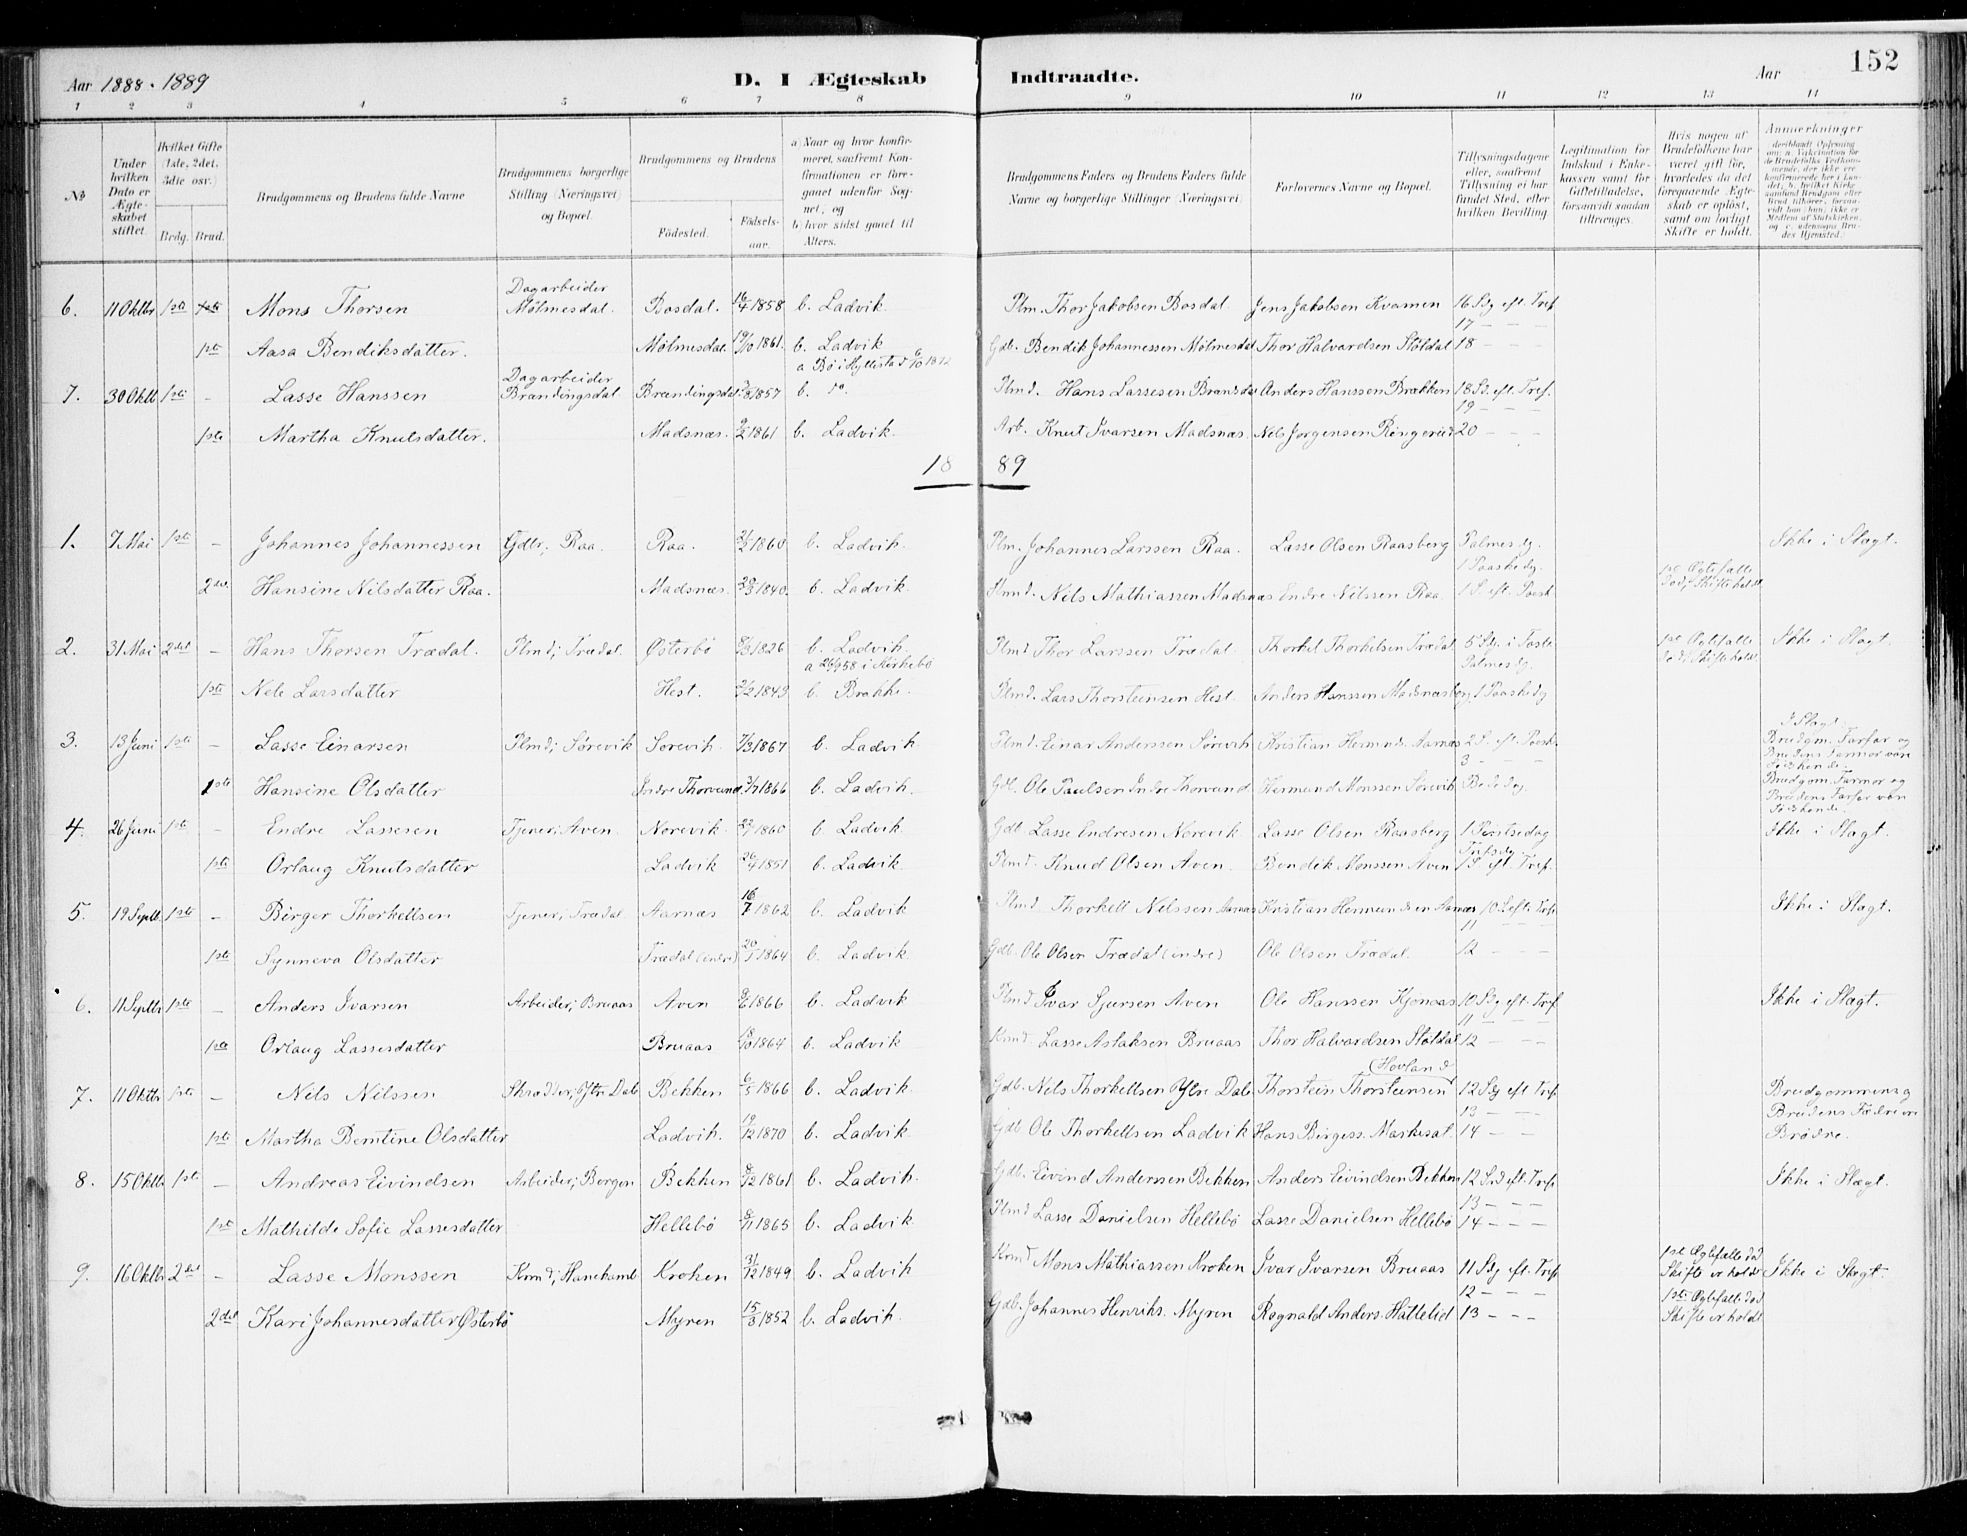 152
Aar 1888-1889 D. I Ægteskab Indtraadte. Aar
1 2 3 4 5 6 7 8 9 10 11 12 13 14
No
Under hvilken Dato er Ægteskabet stiftet.
Hvilket Gifte (1ste, 2det, 3die osv.)
Brdg. Brud.
Brudgommens og Brudens fulde Navne
Brudgommens borgerlige Stilling (Næringsvei) og Bopæl.
Brudgommens og Brudens
Fødested. Fødselsaar.
a) Naar og hvor konfirmeret, saafremt Konfirmationen er foregaaet udenfor Sognet, og
b) hvor sidst gaaet til Alters.
Brudgommens Faders og Brudens Faders fulde Navne og borgerlige Stillinger (Næringsvei).
Forlovernes Navne og Bopæl.
Tillysningsdagene eller, saafremt Tillysning ei har fundet Sted, efter hvilken Bevilling.
Legitimation for Indskud i Enkekassen samt for Giftetilladelse, forsaavidt saadan tiltrænges.
Hvis nogen af Brudefolkene har været gift før, hvorledes da det foregaaende Ægteskab er opløst, samt om lovligt Skifte er holdt.
Anmerkninger
6. 11 Oktbr 1ste Mons Thorsen Dagarbeider Mølmesdal. Bosdal. 16/4 1858 b. Ladvik Plm. Thor Jakobsen Bosdal Jens Jakobsen Kvamen 16 Sdg eft. Tref
17 - - -
1ste Aasa Bendiksdatter. Mølmesdal. 19/10 1861. b. Ladvik Gdb. Bendik Johannessen Mølmesdal Thor Halvardsen Støldal 18 - - -
a Bø i Hyllestad 6/10 1872
7. 30 Oktb 1ste - Lasse Hanssen Dagarbeider Brændingsdal Brændingsdal 1857 b. do. Plmd. Hans Lassesen Anders Hanssen Brækken 18 Sd. eft. Tref.
19 - - -
1ste Martha Knutsdatter. Madsnæs. 9/2 1861 b. Ladvik. Arb. Knut Ivarsen Madsnæs. Nils Jørgensen Ringerud 20 - - -
18 89
1. 7 Mai 1ste - Johannes Johannessen Gdbr, Raa. Raa. 1860 b. Ladvik. Plm. Johannes Larssen Raa. Lasse Olsen Raasberg Palmesdg. Ikke i Slægt.
1 Paaskedg.
2det Hansine Nilsdatter Raa. Madsnæs. 1840. b. Ladvik. Nils Mathiassen Madsnæs Endre Nilssen Raa 1 S. eft. Paask 1ste Ægtefælle død, Skifte holdt
2. 31 Mai 2det - Hans Thorsen Trædal. Plmd; Trædal. Østerbø 8/3 1826 b. Ladvik. Plmd Thor Larssen Trædal. Thorkel Thorkelsen Trædal 5 Sdg. i Faste 1ste Ægtefælle død, Skifte holdt Ikke i Slægt.
a 26/9 58 i Kirkebø Palmesdg.
1ste Nele Larsdatter Hest. 1843 b. Brække. Plmd. Lars Thorsteinsen Hest. Anders Hanssen Madsnæsberg, 1 Paaskedg
3. 13 Juni 1ste - Lasse Einarsen Plmd; Sørevik Sørevik. 7/3 1867 b. Ladvik Plmd. Einar Anderssen Sørevik Kristian Hermunds. Aarnæs 2 S. eft. Paask. I Slægt. Brudgom. Farfar og Brudens Farmor vare Søskende.
3 - - -
1ste Hansine Olsdatter Indre Thorvund. 3/7 1866 b. Ladvik. Gdb. Ole Paulsen Indre Thorvund Hermund Monssen Sørevik Bededag. Brudgom. Farmor og Brudens Farfar vare Søskende.
4. 26 Juni 1ste - Endre Lassesen Tjener; Aven. Norevik. 1860 b. Ladvik. Gdb. Lasse Endresen Norevik Lasse Olsen Raasberg 1 Pintsedag Ikke i Slægt.
Trefsdg
1ste Orlaug Knutsdatter Ladvik 26/4 1851 b. Ladvik. Plmd. Knud Olsen Aven. Bendik Monssen Aven 1 S. eft. Tref.
5. 19 Septb. 1ste - Birger Thorkellsen Tjener; Trædal Aarnæs 16/7 1862 b. Ladvik Plmd Thorkell Nilssen Aarnæs Kristian Hermundsen Aarnæs 10 S. eft. Tref. Ikke i Slægt.
11 - - -
1ste Synneva Olsdatter Trædal (indre) 20/1 1864 b. Ladvik. Gdb. Ole Olsen Trædal (indre) Ole Olsen Trædal. 12 - - -
6. 11 Septbr 1ste - Anders Ivarsen Arbeider; Bruaas Aven 9/6 1866 b. Ladvik Plmd Ivar Sjursen Aven Ole Hanssen Kjønaas 10 Sdg eft. Tref. Ikke i Slægt.
11 - - -
1ste Orlaug Lassesdatter Bruaas 18/10 1864 b. Ladvik Kmd Lasse Aslaksen Bruaas Thor Halvardsen Støldal 12 - - -
(Hovland)
7. 11 Oktbr 1ste - Nils Nilssen Skrædder; Ytre Dale Bekken 6/5 1866 b. Ladvik. Gdb. Nils Thorkellsen Ytre Dale Thorstein Thorsteinsen 12 Sdg eft Tref. Brudgommens og Brudens Fædre vare Brødre.
13 - - -
1ste Martha Berntine Olsdatter Ladvik. 19/12 1870 b. Ladvik. Gdb Ole Thorkellsen Ladvik Hans Birgess. Markesæt. 14 - -
8. 15 Oktb 1ste - Andreas Eivindsen Arbeider; Bergen Bekken 8/12 1861 b. Ladvik. Gdb. Eivind Anderssen Bekken Anders Eivindsen Bekken 12 Snd eft. Tref. Ikke i Slægt.
13 - - -
1ste Mathilde Sofie Lassesdatter Hellebø 8/11 1865 b. Ladvik. Plmd Lasse Danielsen Hellebø Lasse Danielsen Hellebø 14 - - -
9. 16 Oktbr 2det - Lasse Monssen Kmd; Hanekamb Kroken 31/12 1849 b. Ladvik Kmd. Mons Mathiassen Kroken Ivar Ivarsen Bruaas 11 Sdg eft. Tref. 1ste Ægtefælle død Skifte er holdt Ikke i Slægt.
12 - - -
2det Kari Johannesdatter Østerbø Myren 15/3 1852 b. Ladvik. Gdb. Johannes Henriks. Myren Rognald Anders. Hattelid 13 - - - 1ste Ægtefælle død Skifte er holdt